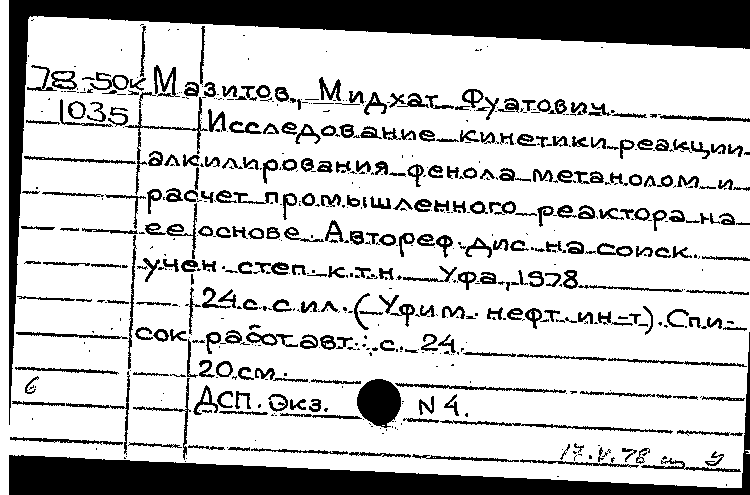 78-50к Мазитов, Мидхат Фуатович.
1035 Исследование кинетики реакции
алкилирования фенола метанолом и
расчет промышленного реактора на
ее основе. Автореф. дис. на соиск.
учен. степ. к.т.н. Уфа, 1978
24 с. с ил. (Уфим. нефт. ин-т). Спи-
сок работ авт.: с. 24.
20 см.
6 ДСП. Экз. N 4.
17.V.78